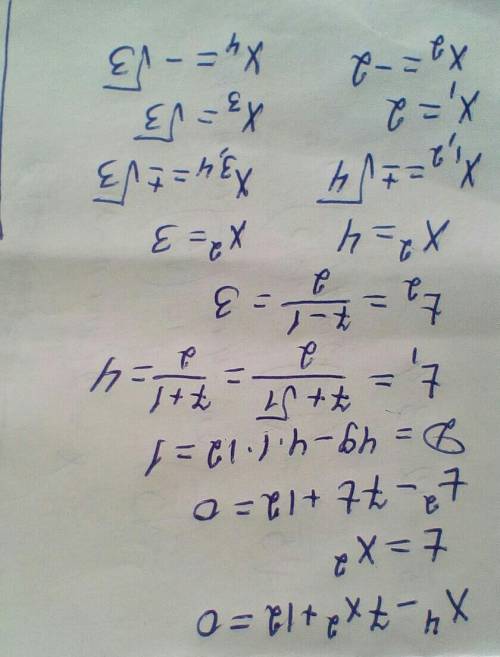 x⁴ - 7x² + 12 = 0
t = x²
t² - 7t + 12 = 0
D = 49 - 4·1·12 = 1
t₁ = (7 + √1)/2 = (7 + 1)/2 = 4
t₂ = (7 - 1)/2 = 3
x² = 4 x² = 3
x₁,₂ = ±√4 x₃,₄ = ±√3
x₁ = 2 x₃ = √3
x₂ = -2 x₄ = -√3